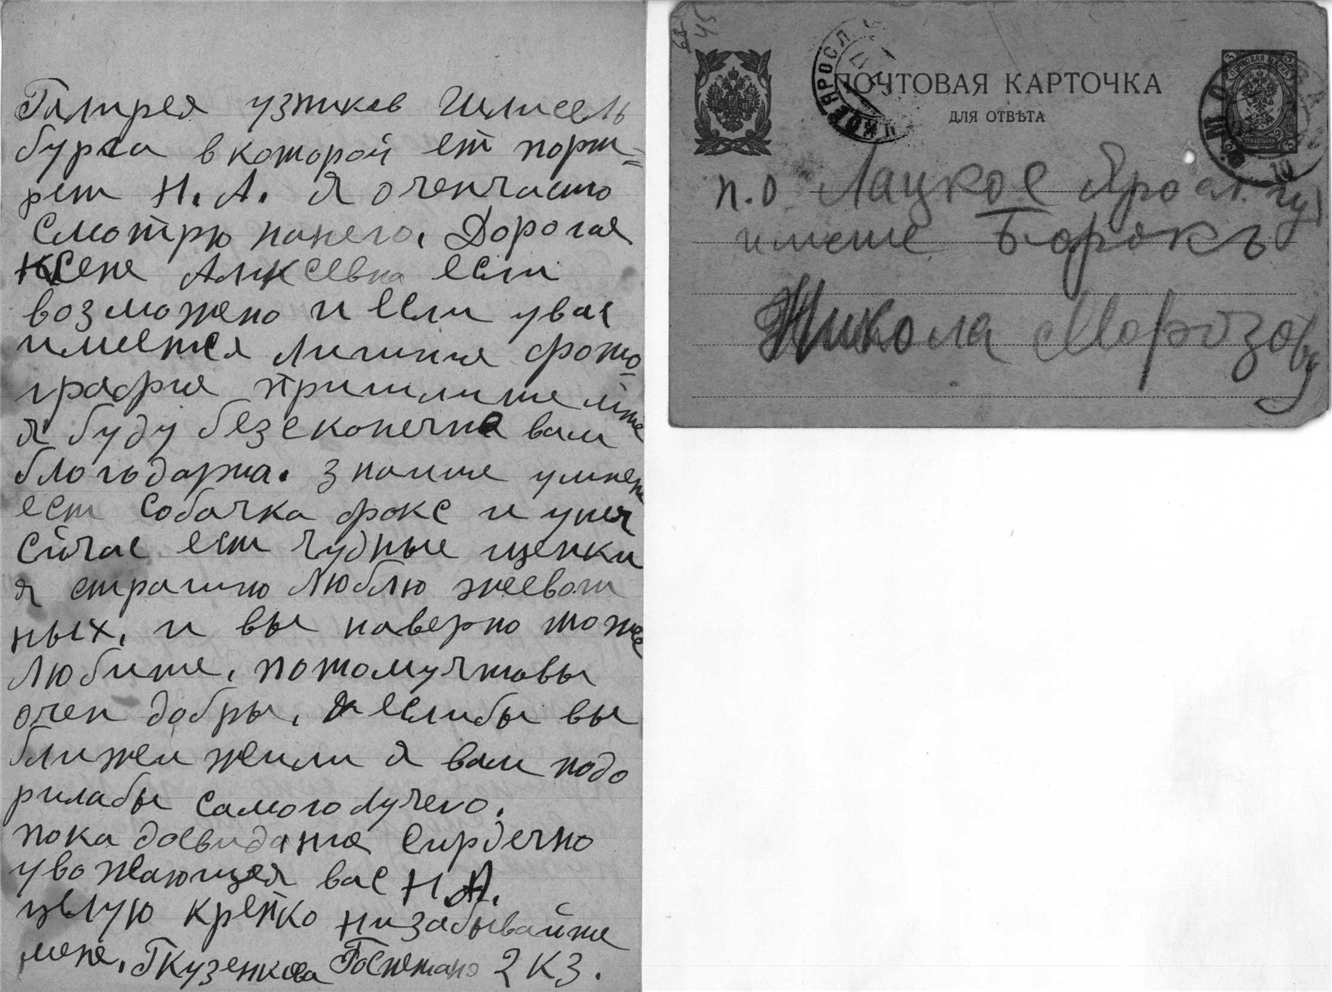 Галирея узников Шлисель
бурга в которой ет порт=
рет Н. А. я оченчасто
смотрю нанего. Дорогая
Ксене Аликсевна если
возможено и если увас
имеется лишния фото
графия пришлите мне
я буду безсконечна вам
благодарна. знаите умня
ест собачка фокс и унея
сичас ест чудные щенки
я страшно люблю жевот
ных. и вы наверно тоже
любите. потомучтовы
очен добры. еслибы вы
ближеи жили я вам подо
рилабы самоголучего.
пока досвидания сирдечно
уважающея вас Н. А.
цвлую крепко низабывайте
мене. ГКузенкова 2 КЗ.
68
45
ПОЧТОВАЯ КАРТОЧКА
ДЛЯ ОТВѢТА
п.о Лацкое Яросл. гу
имение Борокъ
Никола Морозову